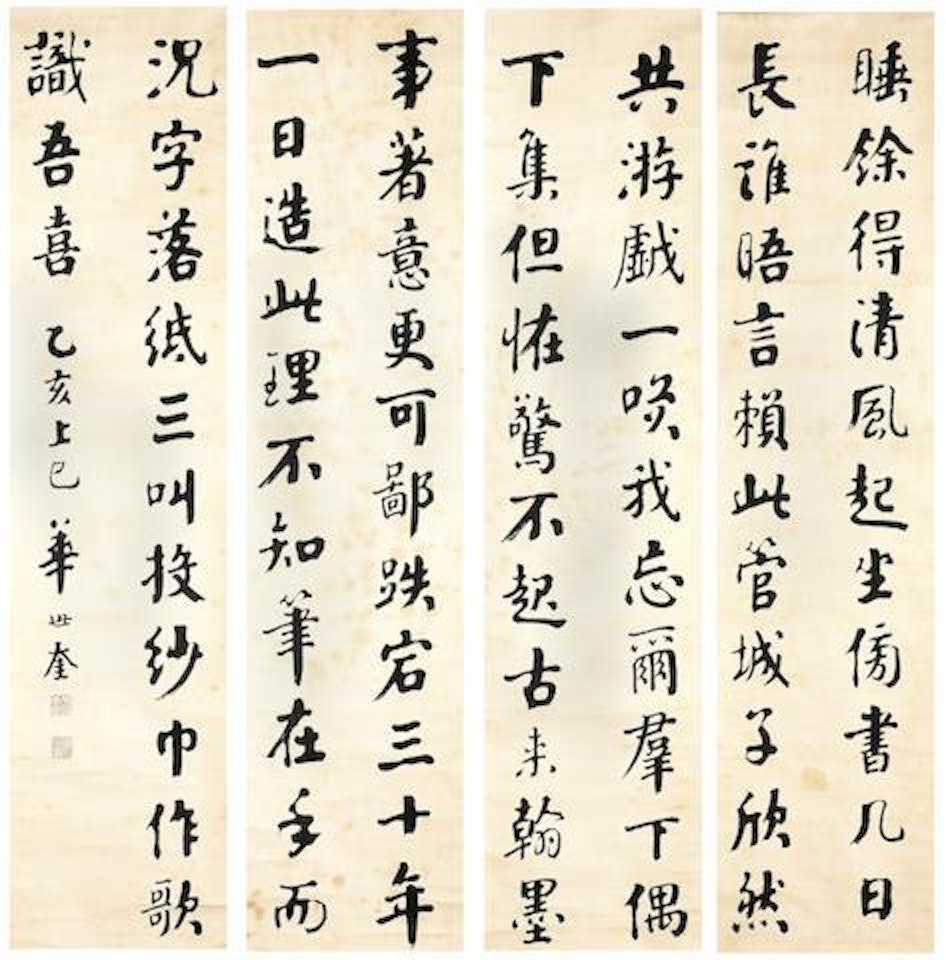 睡餘得清風起坐傍書几日
長誰晤言賴此管城子欣然
共游戲一咲我忘爾羣下偶
下集但恠驚不起古来翰墨
事著意更可鄙跌宕三十年
一日造此理不知筆在手而
況字落紙三叫投紗巾作歌
識吾喜 乙亥上巳 華世奎